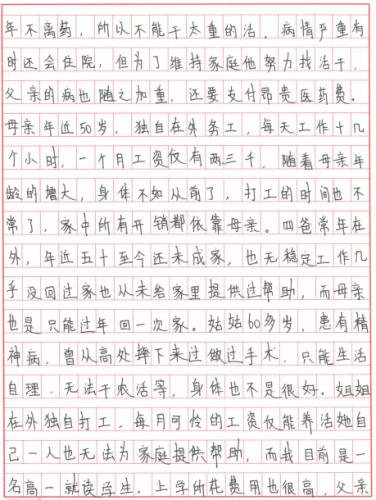 年不离药，所以不能干太重的活，病情严重有
时还会住院，但为了维持家庭他努力找活干，
父亲的病也随之加重，还要支付昂贵医药费。
母亲年近50岁，独自在外务工，每天工作十几
个小时，一个月工资仅有两三千，随着母亲年
龄的增大，身体不如从前了，打工的时间也不
常了，家中所有开销都依靠母亲。四爸常年在
外，年近五十至今还未成家，也无稳定工作几
乎没回过家也从未给家里提供过帮助，而母亲
也是只能过年回一次家。姑姑60多岁，患有精
神病，曾从高处摔下来过做过手术，只能生活
自理，无法干农活等，身体也不是很好。姐姐
在外独自打工，每月可怜的工资仅能养活她自
己一人也无法为家庭提供帮助，而我目前是一
名高一就读学生，上学所花费用也很高，父亲